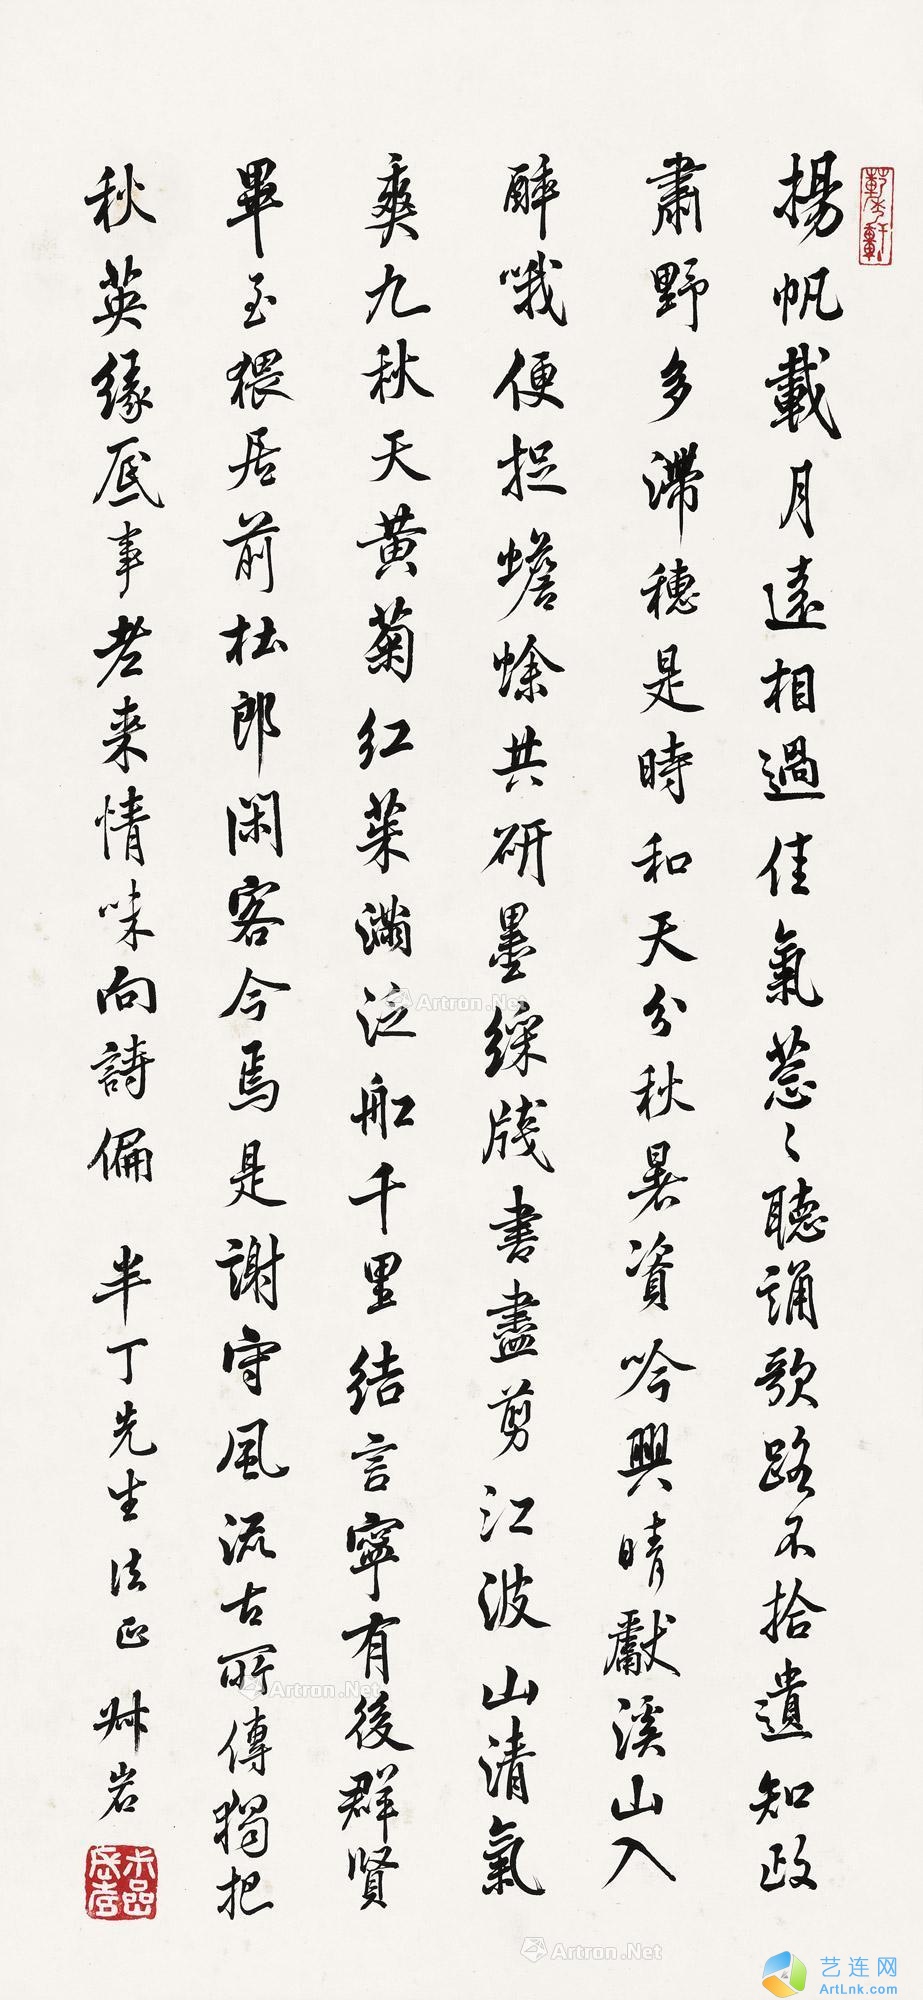 揚帆載月遠相過佳氣葱〻聽誦歌路不拾遺知政
肅野多滯穗是時和天分秋暑資吟興晴獻溪山入
醉哦便捉蟾蜍共研墨綵牋書盡剪江波山清氣
爽九秋天黄菊红茱滿泛舡千里結言寧有後群賢
畢至猥居前杜郎閑客今焉是謝守風流古所傳獨把
秋英緣底事老来情味向詩偏
半丁先生法正
Artron.Net
Artron.Net
Artron.Net
艺连网
ArtLnk.com